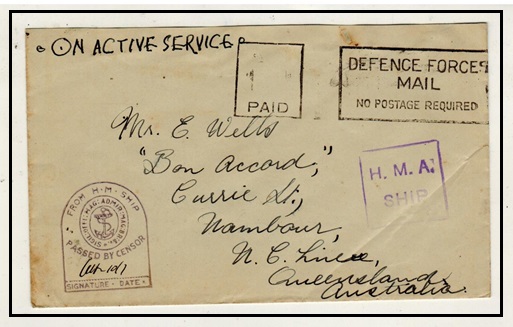 ON ACTIVE SERVICE
PAID
DEFENCE FORCES
MAIL
NO POSTAGE REQUIRED
Mr. E. Wells
"Bon Accord,"
Currie St.,
Nambour,
N. C. Line,
Queensland
Australia.
H. M. A.
SHIP
FROM H·M·SHIP
PASSED BY CENSOR
SIGNATURE · DATE